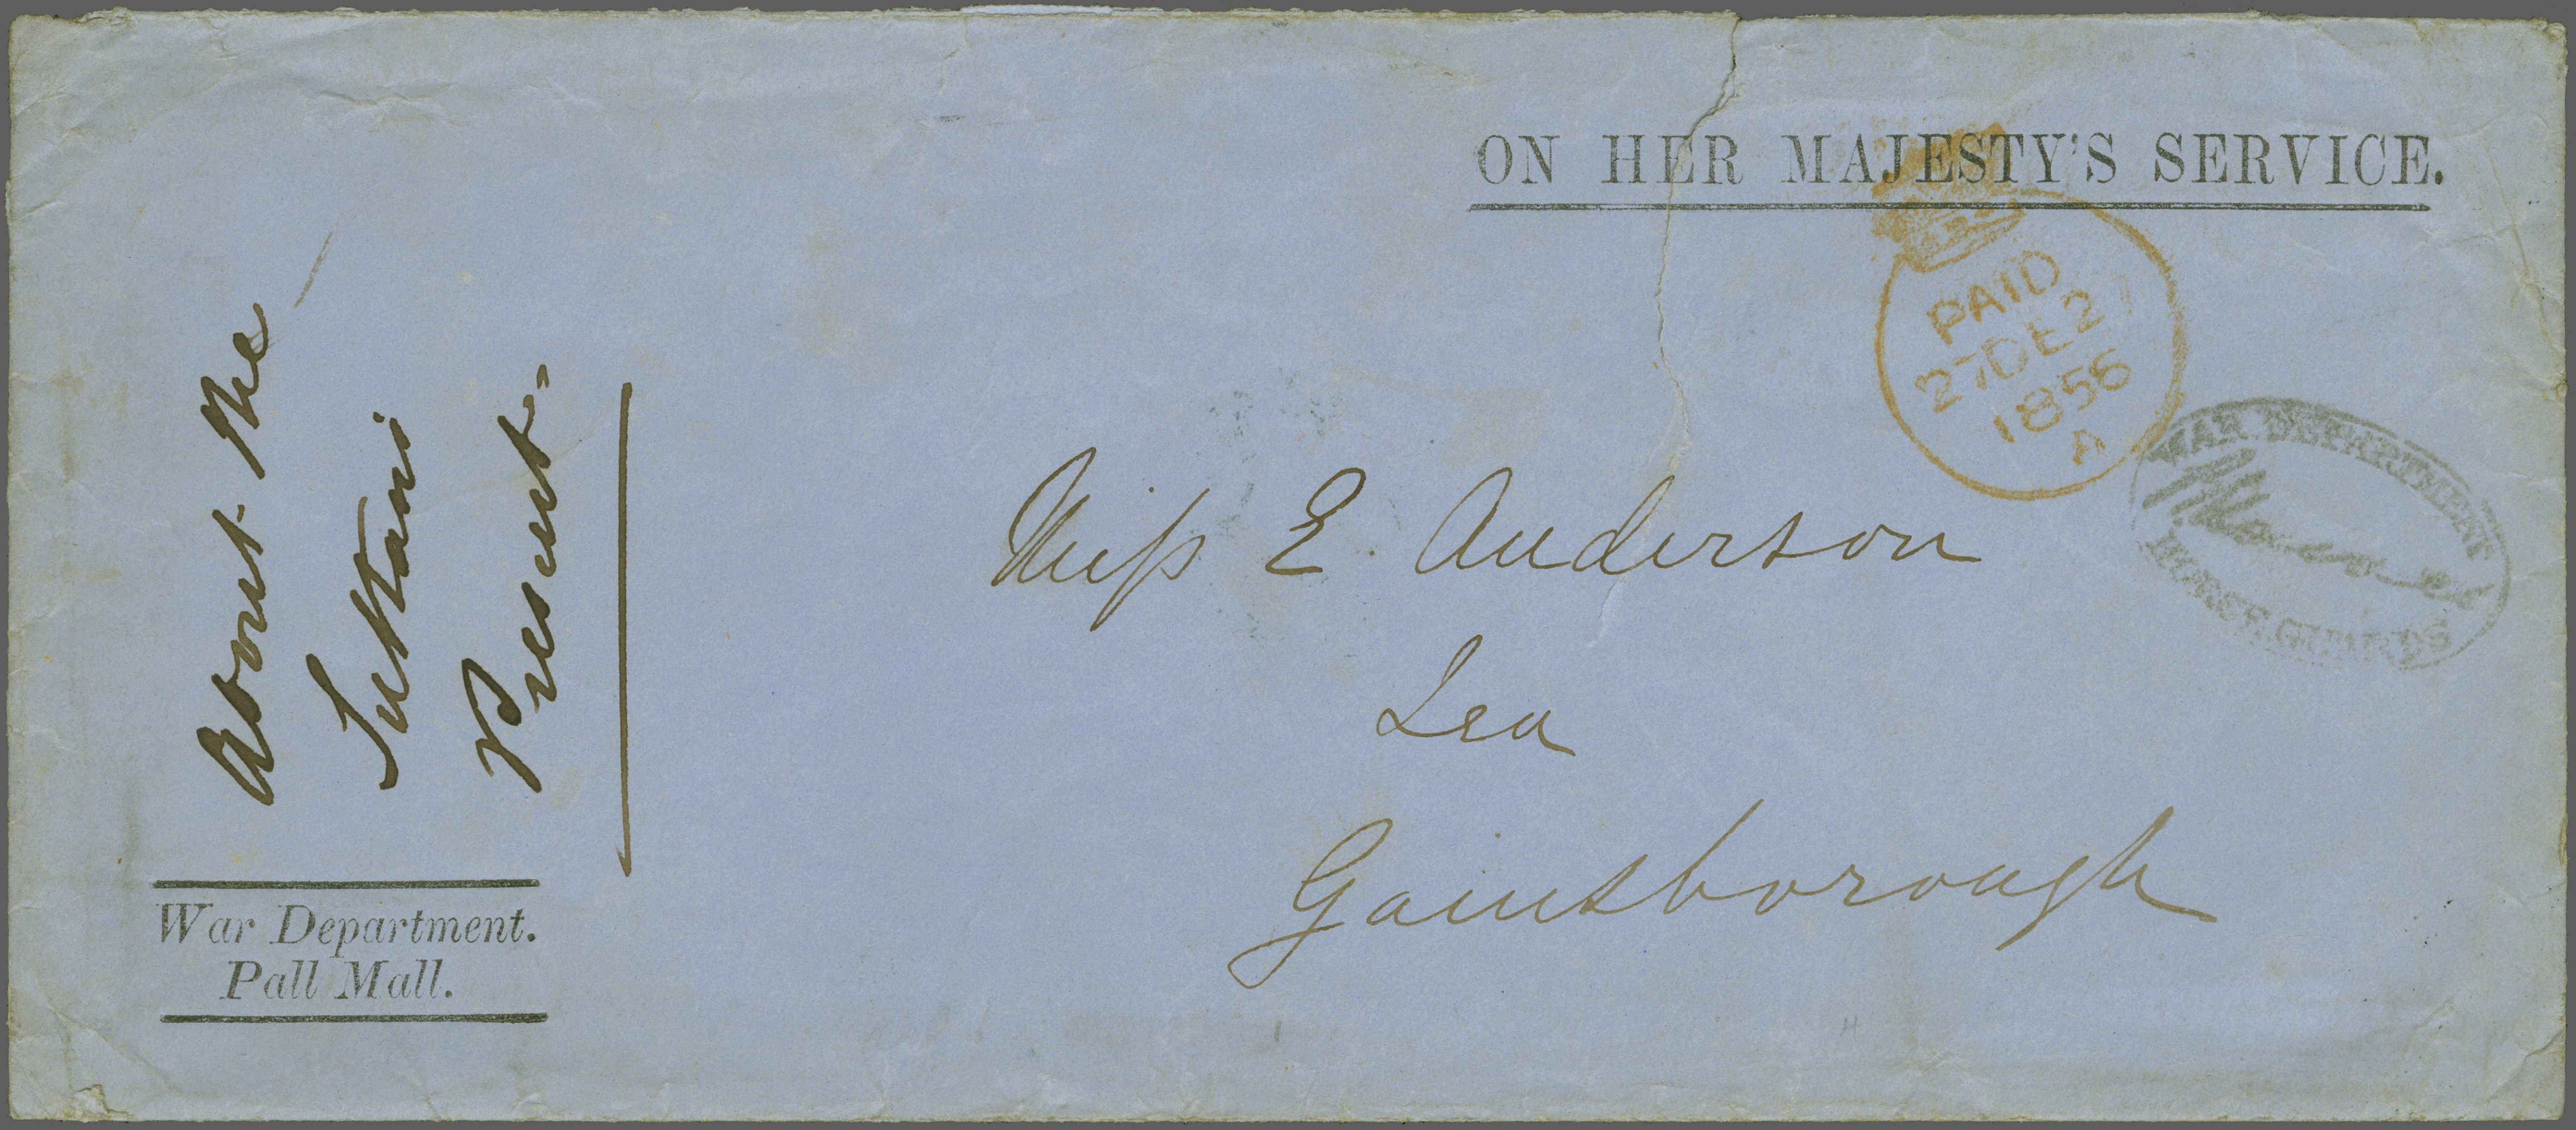 ON HER MAJESTY'S SERVICE.
PAID
27 DE 27
1856
A
WAR DEPARTMENT
HORSE GUARDS
About the
Sultans
Present.
Miſs E. Anderson
Lea
Gainsborough
War Department.
Pall Mall.